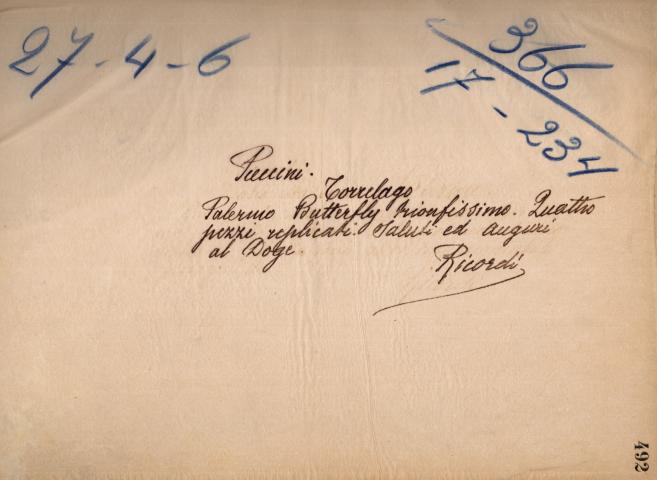 27-4-6
366
17-234
Puccini.
Torrelago
Palermo Butterfly trionfissimo. Quattro
pezzi replicati. Saluti ed auguri
al Doge.
Ricordi
492